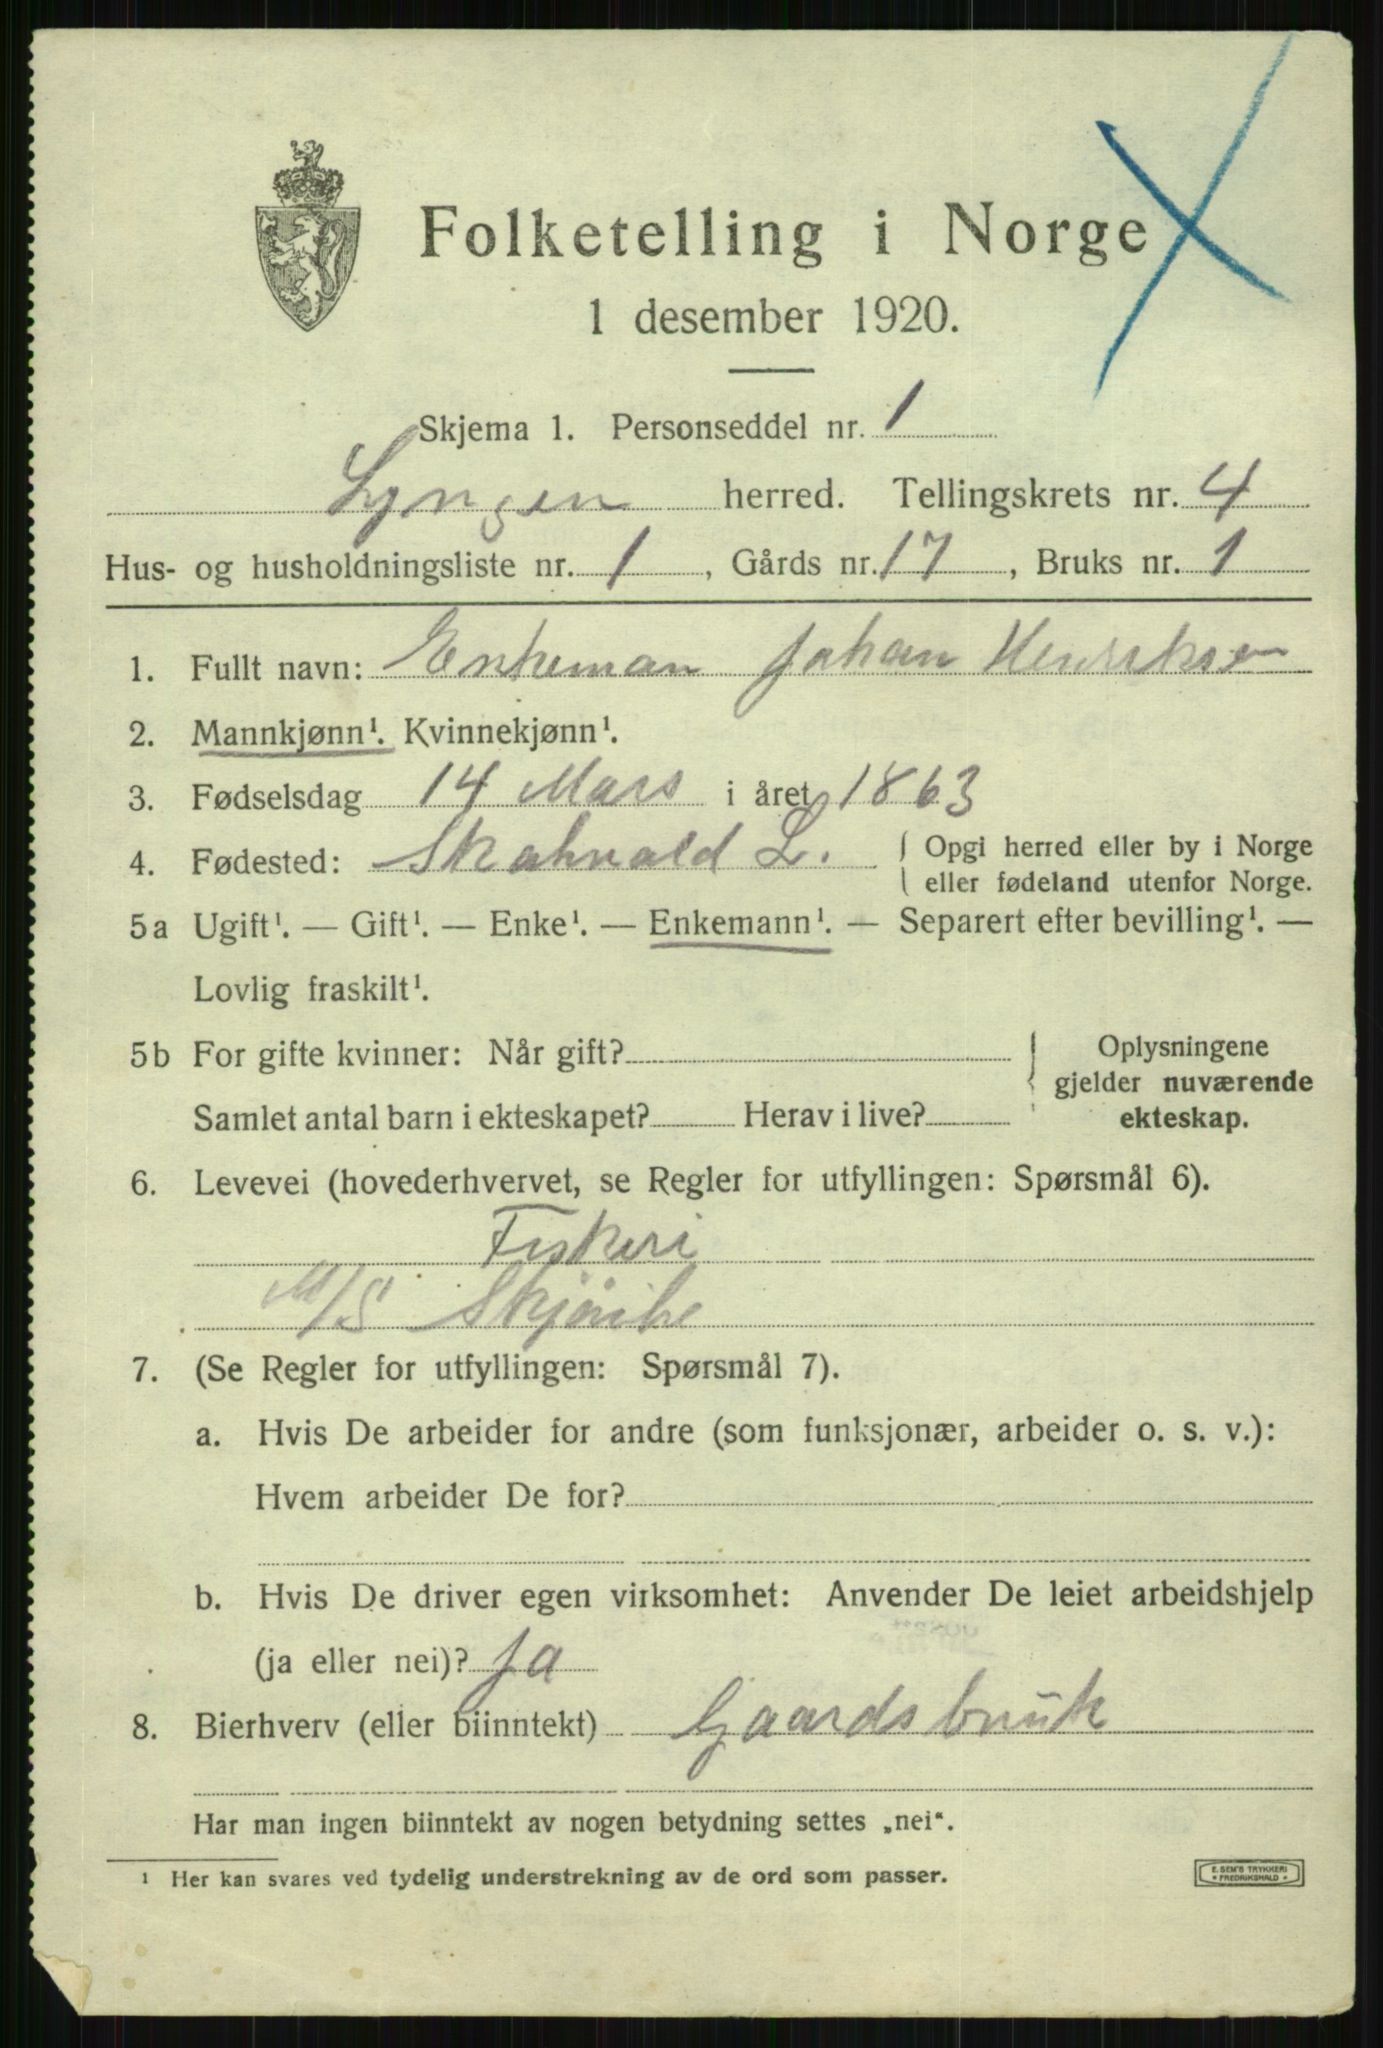 Folketelling i Norge
1 desember 1920.
Skjema 1. Personseddel nr. 1
Lyngen herred. Tellingskrets nr. 4
Hus- og husholdningsliste nr. 1, Gårds nr. 17, Bruks nr. 1
1. Fullt navn: Enkeman Johan Henriksen
2. Mannkjønn¹. Kvinnekjønn¹.
3. Fødselsdag 14 Mars i året 1863
4. Fødested: L. { Opgi herred eller by i Norge
eller fødeland utenfor Norge.
5a Ugift¹. — Gift¹. — Enke¹. — Enkemann¹. — Separert efter bevilling¹. —
Lovlig fraskilt¹.
5b For gifte kvinner: Når gift? { Oplysningene
gjelder nuværende
Samlet antal barn i ekteskapet? Herav i live? ekteskap.
6. Levevei (hovederhvervet, se Regler for utfyllingen: Spørsmål 6).
Fiskeri
M/S
7. (Se Regler for utfyllingen: Spørsmål 7).
a. Hvis De arbeider for andre (som funksjonær, arbeider o. s. v.):
Hvem arbeider De for?
b. Hvis De driver egen virksomhet: Anvender De leiet arbeidshjelp
(ja eller nei)? ja
8. Bierhverv (eller biinntekt) Gaardsbruk
Har man ingen biinntekt av nogen betydning settes „nei“.
¹ Her kan svares ved tydelig understrekning av de ord som passer.
E. SEM'S TRYKKERI
* FREDRIKSHALD *